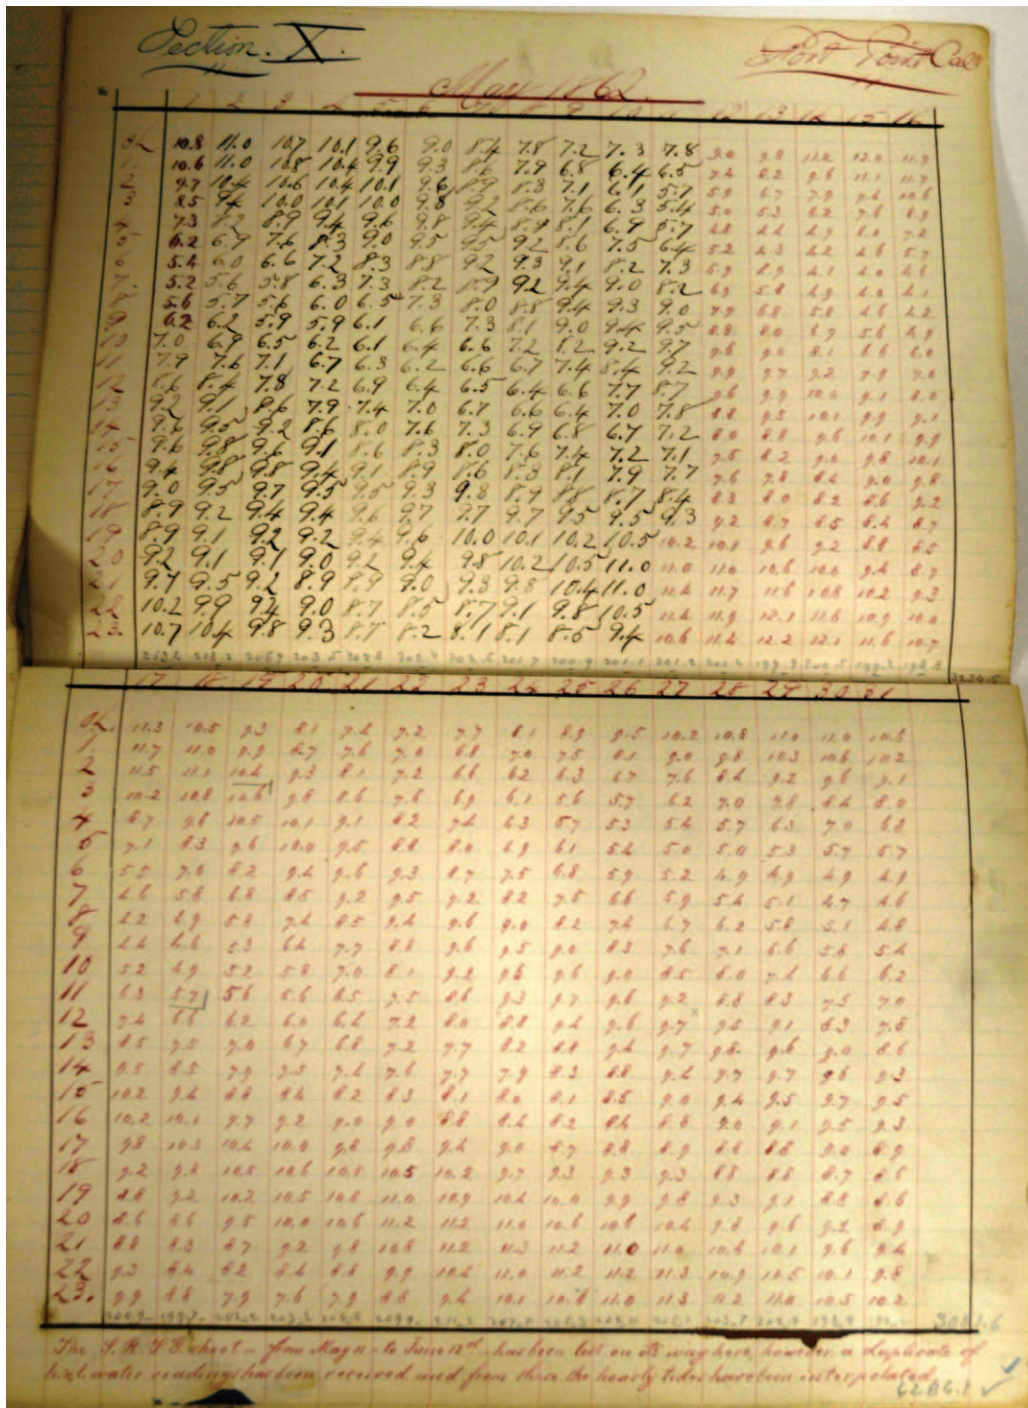 Section. X.
Fort Point Cal
May 1862.
1 2 3 4 5 6 7 8 9 10 11 12 13 14 15 16
0h 10.8 11.0 10.7 10.1 9.6 9.0 8.4 7.8 7.2 7.3 7.8 9.0 9.8 11.2 12.0 11.9
1 10.6 11.0 10.8 10.4 9.9 9.3 8.6 7.9 6.8 6.4 6.5 7.4 8.2 9.6 11.1 11.7
2 9.7 10.4 10.6 10.4 10.1 9.6 8.9 8.3 7.1 6.1 5.7 5.9 6.7 7.9 9.4 10.6
3 8.5 9.4 10.0 10.1 10.0 9.8 9.2 8.6 7.6 6.3 5.4 5.0 5.3 6.2 7.6 8.9
4 7.3 8.2 8.9 9.4 9.6 9.8 9.4 8.9 8.1 6.9 5.7 4.8 4.4 4.9 6.0 7.2
5 6.2 6.9 7.6 8.3 9.0 9.5 9.5 9.2 8.6 7.5 6.4 5.2 4.3 4.2 4.6 5.7
6 5.4 6.0 6.6 7.2 8.3 8.8 9.2 9.3 9.1 8.2 7.3 5.9 4.9 4.1 4.0 4.6
7 5.2 5.6 5.8 6.3 7.3 8.2 8.9 9.2 9.4 9.0 8.2 6.9 5.8 4.9 4.0 4.1
8 5.6 5.7 5.6 6.0 6.5 7.3 8.0 8.8 9.4 9.3 9.0 7.9 6.8 5.8 4.6 4.2
9 6.2 6.2 5.9 5.9 6.1 6.6 7.3 8.1 9.0 9.4 9.5 8.8 8.0 6.9 5.6 4.9
10 7.0 6.9 6.5 6.2 6.1 6.4 6.6 7.2 8.2 9.2 9.7 9.6 9.0 8.1 6.6 6.0
11 7.9 7.6 7.1 6.7 6.3 6.2 6.6 6.7 7.4 8.4 9.2 9.9 9.7 9.2 7.9 7.0
12 8.6 8.4 7.8 7.2 6.9 6.4 6.5 6.4 6.6 7.7 8.7 9.6 9.9 10.0 9.1 8.0
13 9.2 9.1 8.6 7.9 7.4 7.0 6.7 6.6 6.4 7.0 7.8 8.8 9.5 10.1 9.9 9.1
14 9.6 9.5 9.2 8.6 8.0 7.6 7.3 6.9 6.8 6.7 7.2 8.0 8.8 9.6 10.1 9.9
15 9.6 9.8 9.6 9.1 8.6 8.3 8.0 7.6 7.4 7.2 7.1 7.5 8.2 9.0 9.8 10.1
16 9.4 9.8 9.8 9.4 9.1 8.9 8.6 8.3 8.1 7.9 7.7 7.6 7.8 8.4 9.0 9.8
17 9.0 9.5 9.7 9.5 9.5 9.3 9.3 8.9 8.8 8.7 8.4 8.3 8.0 8.2 8.6 9.2
18 8.9 9.2 9.4 9.4 9.6 9.7 9.7 9.7 9.5 9.5 9.3 9.2 8.7 8.5 8.4 8.7
19 8.9 9.1 9.2 9.2 9.4 9.6 10.0 10.1 10.2 10.5 10.2 10.1 9.6 9.2 8.8 8.5
20 9.2 9.1 9.1 9.0 9.2 9.4 9.8 10.2 10.5 11.0 11.0 11.0 10.6 10.0 9.4 8.7
21 9.7 9.5 9.2 8.9 8.9 9.0 9.3 9.8 10.4 11.0 11.4 11.7 11.6 10.8 10.2 9.3
22 10.2 9.9 9.4 9.0 8.7 8.5 8.7 9.1 9.8 10.5 11.4 11.9 12.1 11.6 10.9 10.4
23. 10.7 10.4 9.8 9.3 8.7 8.2 8.1 8.1 8.5 9.4 10.6 11.4 12.2 12.1 11.6 10.7
17 18 19 20 21 22 23 24 25 26 27 28 29 30 31
0h. 11.3 10.5 9.3 8.1 7.4 7.2 7.7 8.1 8.9 9.5 10.2 10.8 11.0 11.0 10.6
1. 11.7 11.0 9.9 8.7 7.6 7.0 6.8 7.0 7.5 8.1 9.0 9.8 10.3 10.6 10.2
2 11.5 11.1 10.4 9.3 8.1 7.2 6.6 6.2 6.3 6.7 7.6 8.4 9.2 9.6 9.1
3 10.2 10.8 10.6 9.8 8.6 7.6 6.9 6.1 5.6 5.7 6.2 7.0 7.8 8.4 8.0
4 8.7 9.6 10.5 10.1 9.1 8.2 7.4 6.3 5.7 5.3 5.4 5.7 6.3 7.0 6.8
5 7.1 8.3 9.6 10.0 9.5 8.8 8.0 6.9 6.1 5.4 5.0 5.0 5.3 5.7 5.7
6 5.5 7.0 8.2 9.4 9.6 9.3 8.7 7.5 6.8 5.9 5.2 4.9 4.9 4.9 4.9
7 4.6 5.8 6.8 8.5 9.2 9.5 9.2 8.2 7.5 6.6 5.9 5.4 5.1 4.7 4.6
8 4.2 4.9 5.8 7.4 8.5 9.4 9.6 9.0 8.2 7.4 6.7 6.2 5.8 5.1 4.8
9 4.4 4.6 5.3 6.4 7.7 8.8 9.6 9.5 9.0 8.3 7.6 7.1 6.6 5.8 5.4
10 5.2 4.9 5.2 5.8 7.0 8.1 9.2 9.6 9.6 9.0 8.5 8.0 7.4 6.6 6.2
11 6.3 5.7 5.6 5.6 6.5 7.5 8.6 9.3 9.7 9.6 9.2 8.8 8.3 7.5 7.0
12 7.4 6.6 6.2 6.0 6.4 7.2 8.0 8.8 9.4 9.6 9.7 9.5 9.1 8.3 7.8
13 8.5 7.5 7.0 6.7 6.8 7.2 7.7 8.2 8.8 9.4 9.7 9.8 9.6 9.0 8.6
14 9.5 8.5 7.9 7.5 7.4 7.6 7.7 7.9 8.3 8.8 9.4 9.7 9.7 9.6 9.3
15 10.2 9.4 8.8 8.4 8.2 8.3 8.1 8.0 8.1 8.5 9.0 9.4 9.5 9.7 9.5
16 10.2 10.1 9.7 9.2 9.0 9.0 8.8 8.4 8.2 8.4 8.8 9.0 9.1 9.5 9.3
17 9.8 10.3 10.4 10.0 9.8 9.8 9.4 9.0 8.7 8.8 8.9 8.8 8.8 9.0 8.9
18 9.2 9.8 10.5 10.6 10.5 10.5 10.2 9.7 9.3 9.3 9.3 8.8 8.8 8.7 8.6
19 8.8 9.2 10.2 10.5 10.8 11.0 10.9 10.4 10.0 9.9 9.8 9.3 9.1 8.8 8.6
20 8.6 8.6 9.5 10.0 10.6 11.2 11.2 11.0 10.6 10.6 10.4 9.8 9.6 9.2 8.9
21 8.8 8.3 8.7 9.2 9.8 10.8 11.2 11.3 11.2 11.0 11.0 10.6 10.1 9.6 9.4
22 9.3 8.4 8.2 8.4 8.8 9.9 10.4 11.0 11.2 11.2 11.3 10.9 10.5 10.1 9.8
23. 9.9 8.8 7.9 7.6 7.9 8.8 9.4 10.1 10.6 11.0 11.3 11.2 11.0 10.5 10.2
3051.6
The S. R. T. G. sheet - from May 11 - to June 12th - has been lost on its way here, however a duplicate of
h. & l. water readings has been received and from them the hourly tides have been interpolated
6286.1 ✓